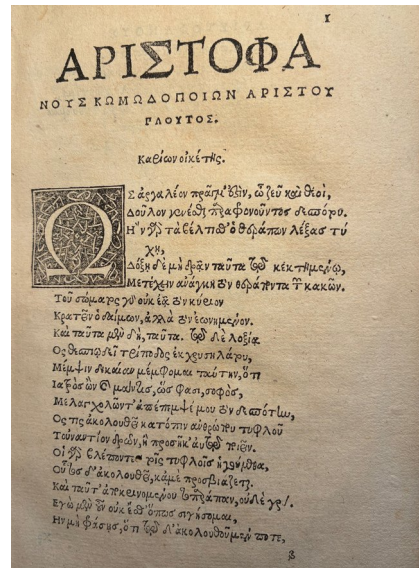 1
ΑΡΙΣΤΟΦΑ
ΝΟΥΣ ΚΩΜΩΔΟΠΟΙΩΝ ΑΡΙΣΤΟΥ
ΠΛΟΥΤΟΣ.
Καρίων οἰκέτης.
Ὡς ἀργαλέον πρᾶγμ' ἐστὶν, ὦ ζεῦ καὶ θεοὶ,
Δοῦλον γενέσθαι παραφρονοῦντος δεσπότου.
Ἢν γὰρ τὰ βέλτισθ' ὁ θεράπων λέξας τύ
χῃ,
Δόξῃ δὲ μὴ δρᾶν ταῦτα τῷ κεκτημένῳ,
Μετέχειν ἀνάγκη τὸν θεράποντα τῶν κακῶν.
Τοῦ σώματος γὰρ οὐκ ἐᾷ τὸν κύριον
Κρατεῖν ὁ δαίμων, ἀλλὰ τὸν ἐωνημένον.
Καὶ ταῦτα μὲν δὴ, ταῦτα. τῷ δὲ λοξίᾳ
Ὃς θεσπιῳδεῖ τρίποδος ἐκ χρυσηλάτου,
Μέμψιν δικαίαν μέμφομαι ταύτην, ὅτι
Ἰατρὸς ὢν καὶ μάντις, ὥς φασι, σοφὸς,
Μελαγχολῶντ' ἀπέπεμψέ μου τὸν δεσπότην,
Ὅστις ἀκολουθεῖ κατόπιν ἀνθρώπου τυφλοῦ
Τοὐναντίον δρῶν, ἢ προσῆκ' αὐτῷ ποιεῖν.
Οἱ γὰρ βλέποντες τοῖς τυφλοῖς ἡγούμεθα,
Οὗτος δ' ἀκολουθεῖ, κἀμὲ προσβιάζεται,
Καὶ ταῦτ' ἀποκρινομένου τὸ παράπαν, οὐδὲ γρύ.
Ἐγὼ μὲν οὖν οὐκ ἔσθ' ὅπως σιγήσομαι,
Ἢν μὴ φράσῃς, ὅτι τῷδ' ἀκολουθοῦμέν ποτε,